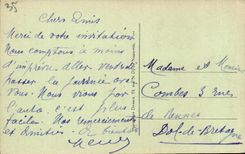 35
Chers Amis
Merci de votre invitation
Nous comptons à moins
d'imprévu aller vendredi
passer la journée avec
vous. Nous irons par
l'auto c'est plus
facile. Nos remerciements
et Amitiés
Madame et Monsieur
Combes 3 rue
de Rennes
Dol-de-Bretagne